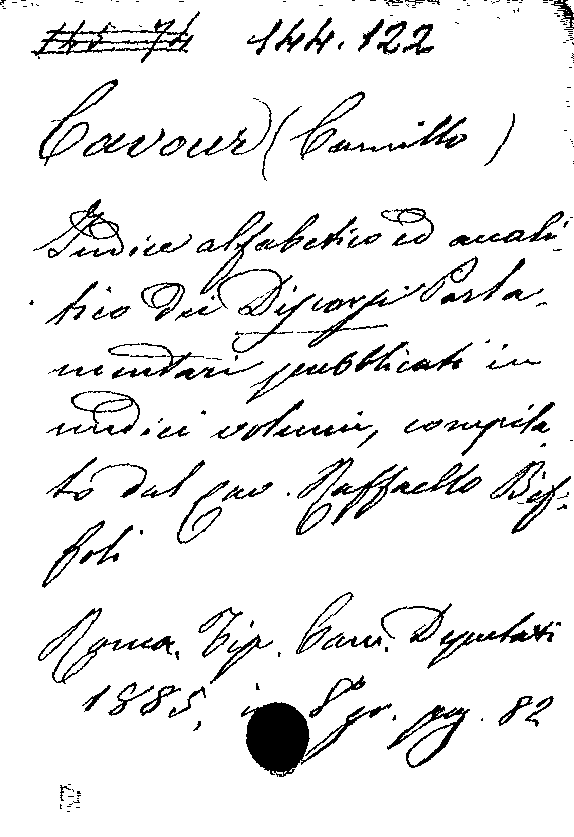 145 74 144.122
Cavour (Camillo)
Indice alfabetico ed anali-
tico dei Discorsi Parla-
mentari pubblicati in
undici volumi, compila-
to dal Cav. Raffaello Bif-
foli
Roma. Tip. Cam. Deputati
1885, in 8° gr. pag. 82